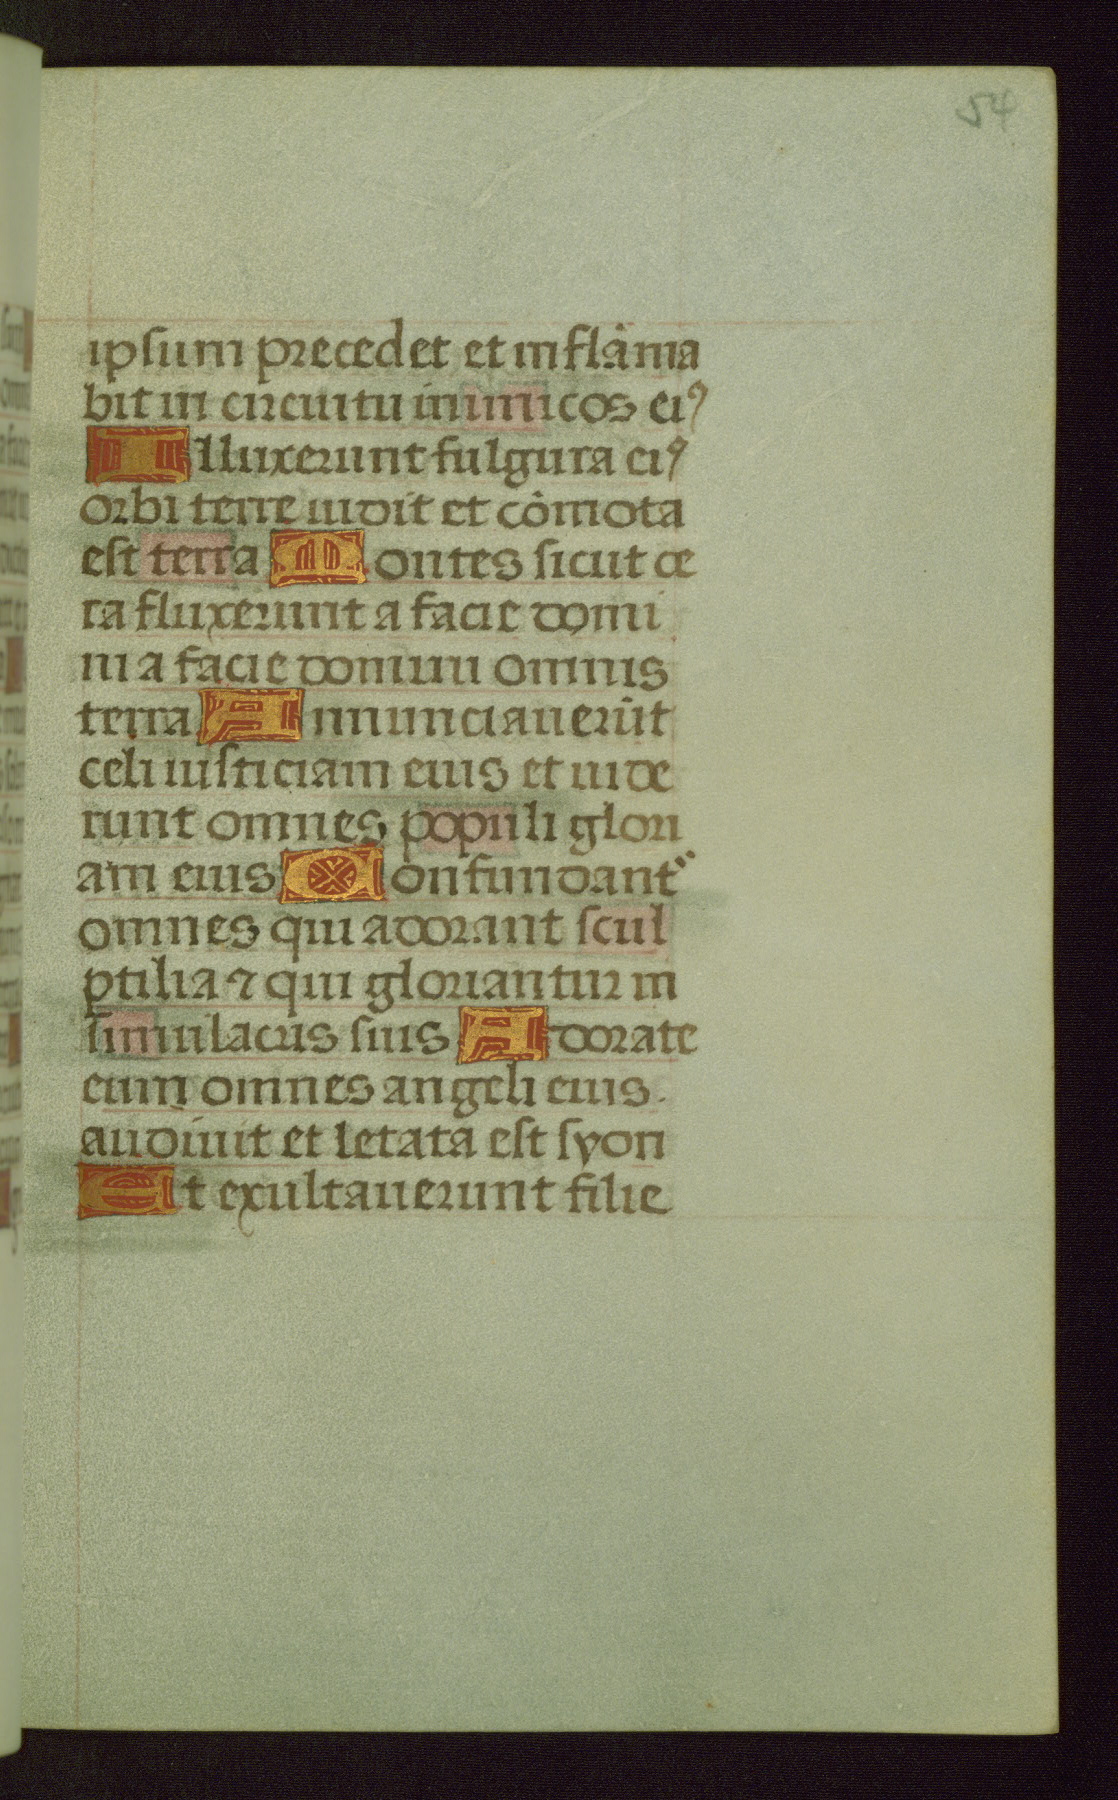 54
ipsum precedet et inflãma
bit in circuitu inimicos eiꝰ
Illuxerunt fulgura eiꝰ
orbi terre uidit et cõmota
est terra Montes sicut ce
ra fluxerunt a facie domi
ni a facie domini omnis
terra Annunciauerũt
celi iusticiam eius et uide
runt omnes populi glori
am eius Confundant᷑
omnes qui adorant scul
ptilia ⁊ qui gloriantur in
simulacris suis Adorate
eum omnes angeli eius.
audiuit et letata est syon
Et exultauerunt filie